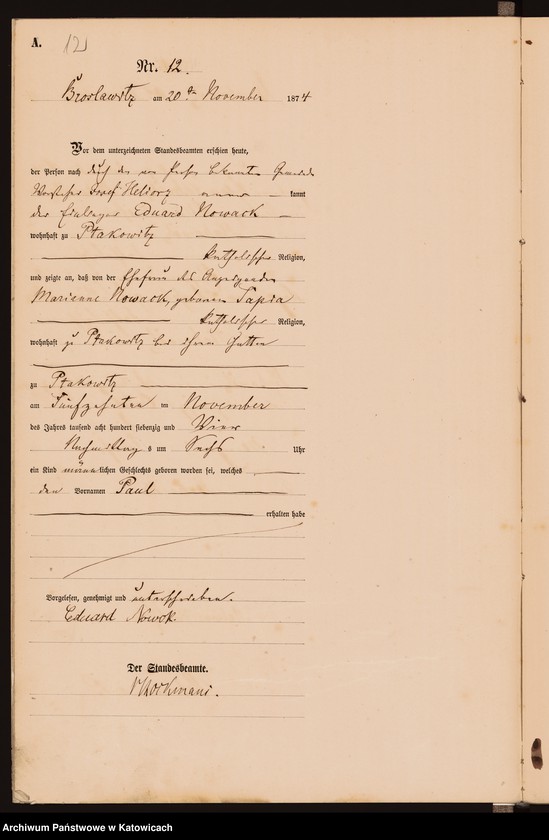 A. 12
Nr. 12.
Broslawitz am 20ten November 1874
Vor dem unterzeichneten Standesbeamten erschien heute,
der Person nach durch den von Person bekannten Gemeinde
Vorsteher Josef Heliorz kannt
der Einlieger Eduard Nowack
wohnhaft zu Ptakowitz
katholischer Religion,
und zeigte an, daß von der Ehefrau des Anzeigenden
Marianne Nowack, geborenen Tapia
katholischer Religion,
wohnhaft zu Ptakowitz bei ihrem Gatten
zu Ptakowitz
am Fünfzehnten im November
des Jahres tausend acht hundert siebenzig und Vier
Nachmittag s um Sechs Uhr
ein Kind männlichen Geschlechts geboren worden sei, welches
den Vornamen Paul
erhalten habe
Vorgelesen, genehmigt und unterschrieben.
Eduard Nowok.
Der Standesbeamte.
Archiwum Państwowe w Katowicach